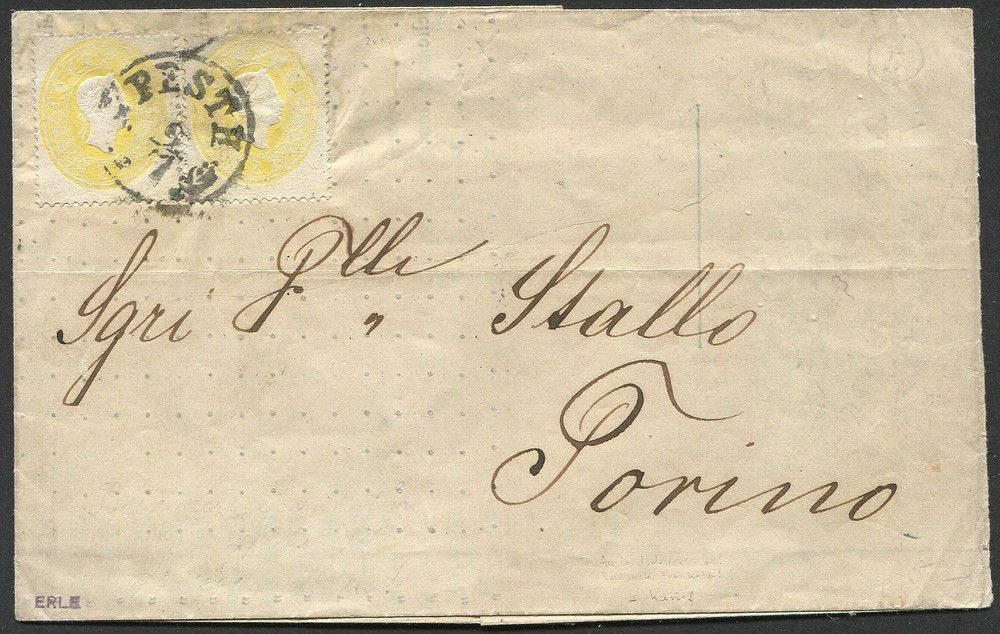 PESTH
Sgri Flli Stallo
Torino
ERLE